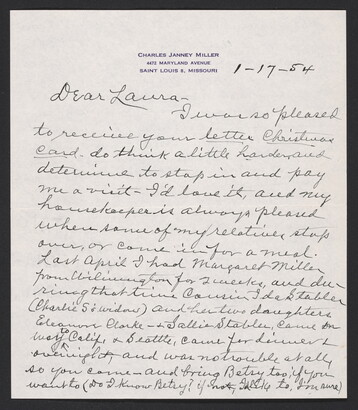 CHARLES JANNEY MILLER
4472 MARYLAND AVENUE
SAINT LOUIS 8, MISSOURI
1-17-54
Dear Laura-
I was so pleased
to receive your letter Christmas
card - do think a little harder, and
determine to stop in and pay
me a visit - I'd love it, and my
housekeeper is always pleased
when some of my relatives stop
over, or come in for a meal.
Last April I had Margaret Miller
from Wilmington for 2 weeks, and du-
ring that time Cousin Ida Stabler
(Charlie S's widow) and her two daughters
Eleanor Clarke - & Sallie Stabler, came on
way to Calif. & Seattle, came for dinner &
overnight, and was no trouble at all,
so you come - and bring Betsy too, if you
want to (Do I know Betsy? if not, I'd like to, I'm sure)